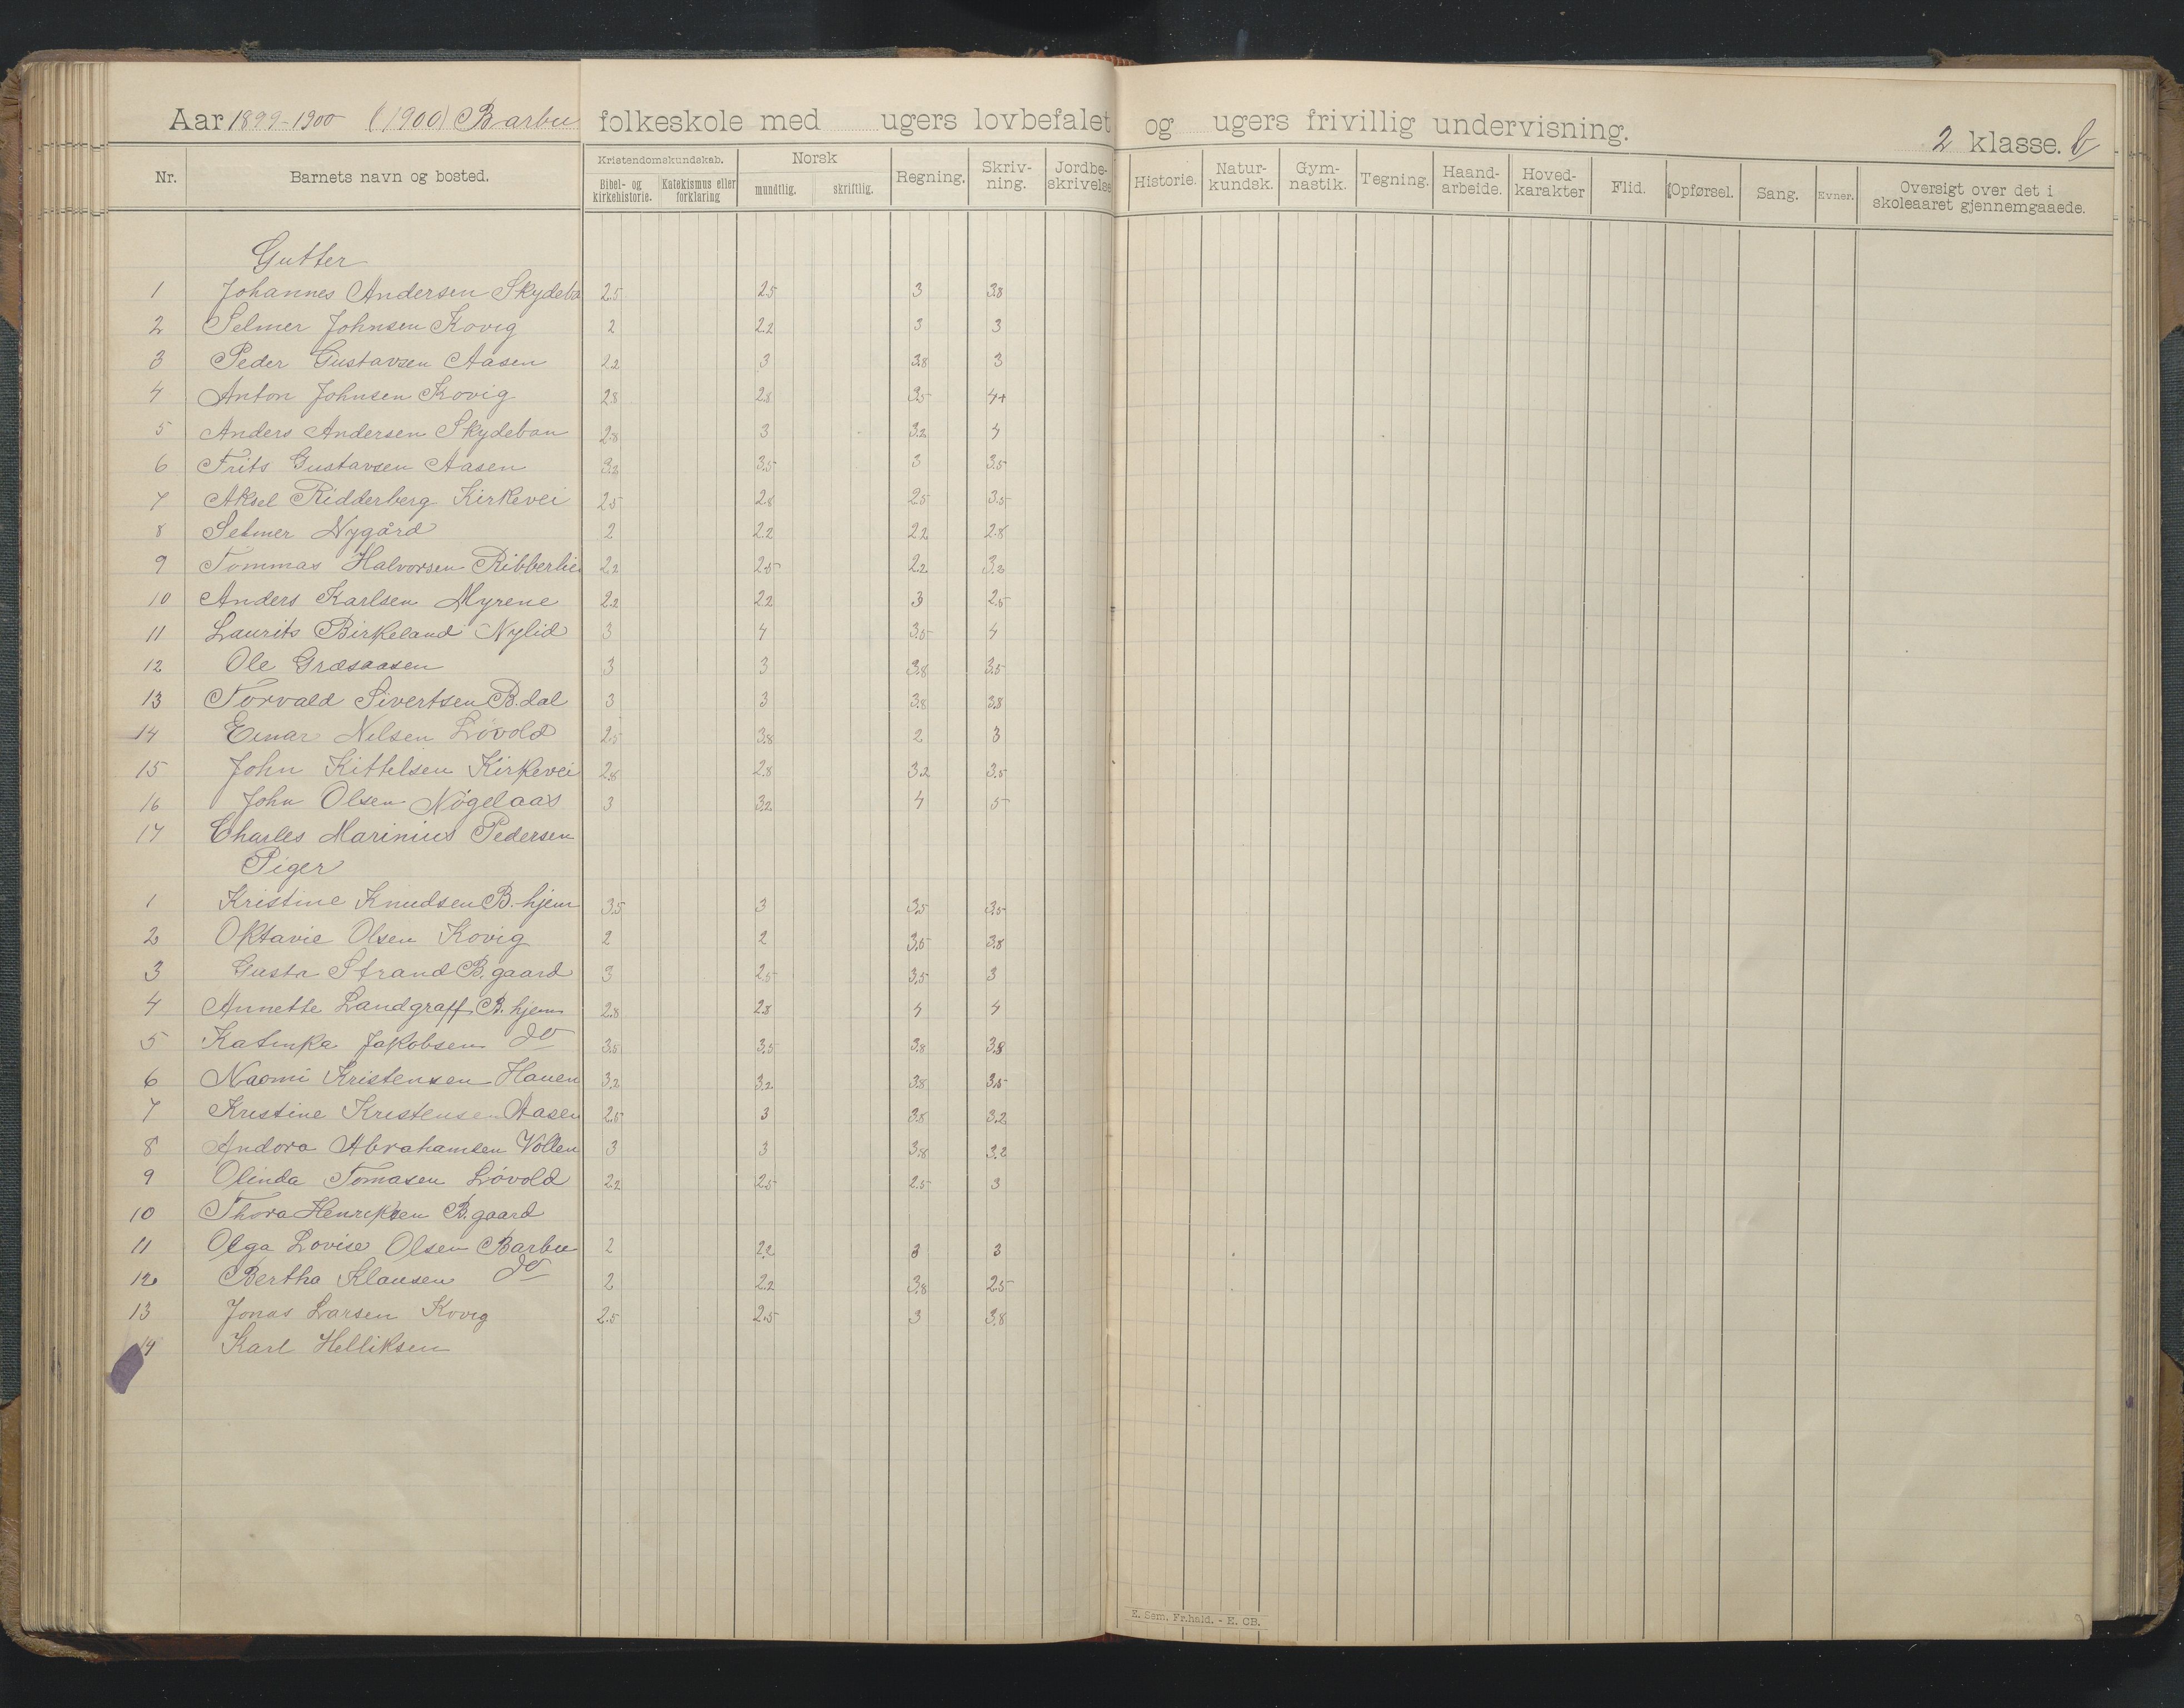 Aar 1899-1900 (1900) Barbu folkeskole med ugers lovbefalet og ugers frivillig undervisning. 2 klasse. b
Nr. Barnets navn og bosted. Kristendomskundskab. Bibel- og kirkehistorie. Katekismus eller forklaring Norsk mundtlig. skriftlig. Regning. Skriv-ning. Jordbe-skrivelse Historie. Natur-kundsk. Gym-nastik. Tegning. Haand-arbeide. Hoved-karakter Flid. Opførsel. Sang. Evner. Oversigt over det i skoleaaret gjennemgaaede.
Gutter
1 Johannes Andersen Skydeba 2.5 2.5 3 3.8
2 Selmer Johnsen Kovig 2 2.2 3 3
3 Peder Gustavsen Aasen 2.2 3 3.8 3
4 Anton Johnsen Kovig 2.8 2.8 3.5 4+
5 Anders Andersen Skydeban 2.8 3 3.2 4
6 Frits Gustavsen Aasen 3.2 3.5 3 3.5
7 Aksel Ridderberg Kirkevei 2.5 2.8 2.5 3.5
8 Selmer Nygård 2 2.2 2.2 2.8
9 Tommas Halvorsen Ribberlie 2.2 2.5 2.2 3.2
10 Anders Karlsen Myrene 2.2 2.2 3 2.5
11 Laurits Birkeland Nylid 3 4 3.5 4
12 Ole Græsaasen 3 3 3.8 3.5
13 Torvald Sivertsen B.dal 3 3 3.8 3.8
14 Einar Nilsen Lövold 2.5 3.8 2 3
15 John Kittelsen Kirkevei 2.8 2.8 3.2 3.5
16 John Olsen Nögelaas 3 3.2 4 5
17 Charles Marinius Pedersen
Piger
1 Kristine Knudsen B.-hjem 3.5 3 3.5 3.5
2 Oktavie Olsen Kovig 2 2 3.5 3.8
3 Gusta Strand B.gaard 3 2.5 3.5 3
4 Annette Landgraff B.hjem 2.8 2.8 4 4
5 Katinka Jakobsen do 3.5 3.5 3.8 3.8
6 Naomi Kristensen Hauen 3.2 3.2 3.8 3.5
7 Kristine Kristensen Aasen 2.5 3 3.8 3.2
8 Andora Abrahamsen Vollen 3 3 3.8 3.2
9 Olinda Tomasen Lövold 2.2 2.5 2.5 3
10 Thora Henriksen B.gaard
11 Olga Lovise Olsen Barbu 2 2.2 3 3
12 Bertha Klausen do 2 2.2 3.8 2.5
13 Jonas Larsen Kovig 2.5 2.5 3 3.8
14 Karl Helliksen
E. Sem, Fr.hald. - E. CB.